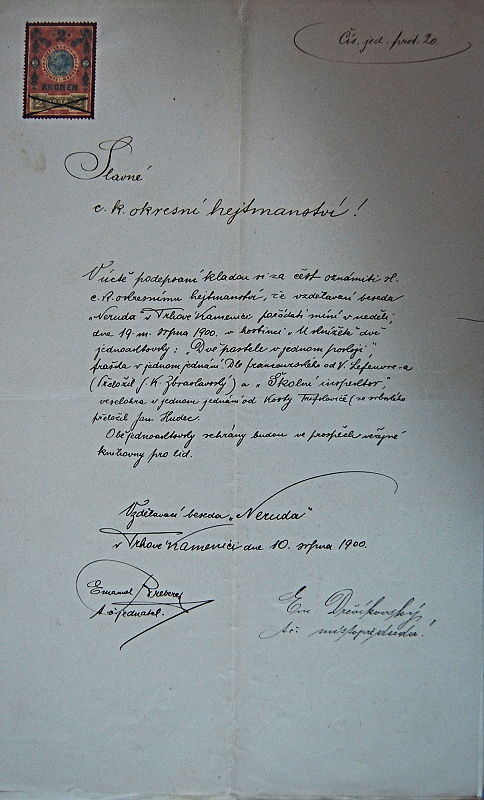 Čís. jed. prot. 20.
2
KRONEN
Slavné
c. k. okresní hejtmanství!
V úctě podepsaní kladou si za čest oznámiti sl.
c. k. okresnímu hejtmanství, že vzdělavací beseda
„Neruda" v Trhové Kamenici pořádati míní v neděli,
dne 19. m. srpna 1900. v hostinci „U Knížků" dvě
jednoaktovky: „Dvě postele v jednom pokoji",
fraška v jednom jednání. Dle francouzského od V. Lefeuvre-a
(Přeložil J. K. Zbraslavský) a „Školní inspektor",
veselohra v jednom jednání od Kosty Trifkoviće (ze srbského
přeložil Jan Hudec.
Obě jednoaktovky sehrány budou ve prospěch veřejné
knihovny pro lid.
Vzdělavací beseda „Neruda"
v Trhové Kamenici dne 10. srpna 1900.
Emanuel
t. č. jednatel.
t. č. místopředseda!